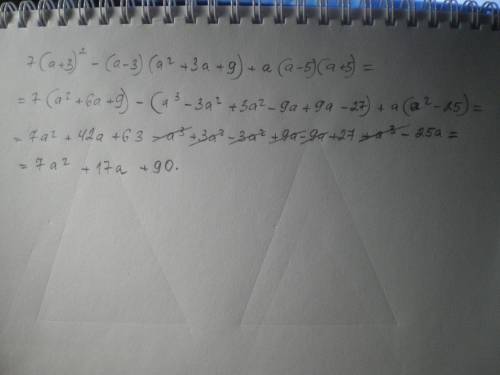 7(a+3)² - (a-3)(a²+3a+9) + a(a-5)(a+5) =
= 7(a²+6a+9) - (a³-3a²+3a²-9a+9a-27) + a(a²-25) =
= 7a² + 42a + 63 - a³ + 3a² - 3a² + 9a - 9a + 27 + a³ - 25a =
= 7a² + 17a + 90.